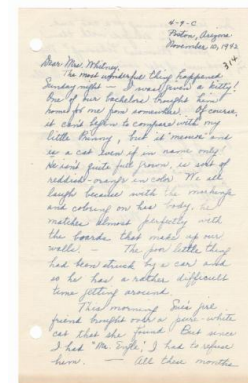 4-9-C
Poston, Arizona
November 10, 1942
314
Dear Mrs. Whitney,
The most wonderful thing happened
Sunday night — I was given a kitty!
One of our bachelors brought him
home to me from somewhere. Of course,
it can't begin to compare with my
little Bunny, but it "meows" and
is a cat even if in name only!
He isn't quite full grown, is sort of
reddish-orange in color. We all
laugh because with the markings
and coloring on his body, he
matches almost perfectly with
the boards that make up our
walls. — The poor little thing
had been struck by a car and
so he has a rather difficult
time getting around.
This morning Sue's
friend brought over a pure-white
cat that she found. But since
I had "Mr. ", I had to refuse
him. — All these months